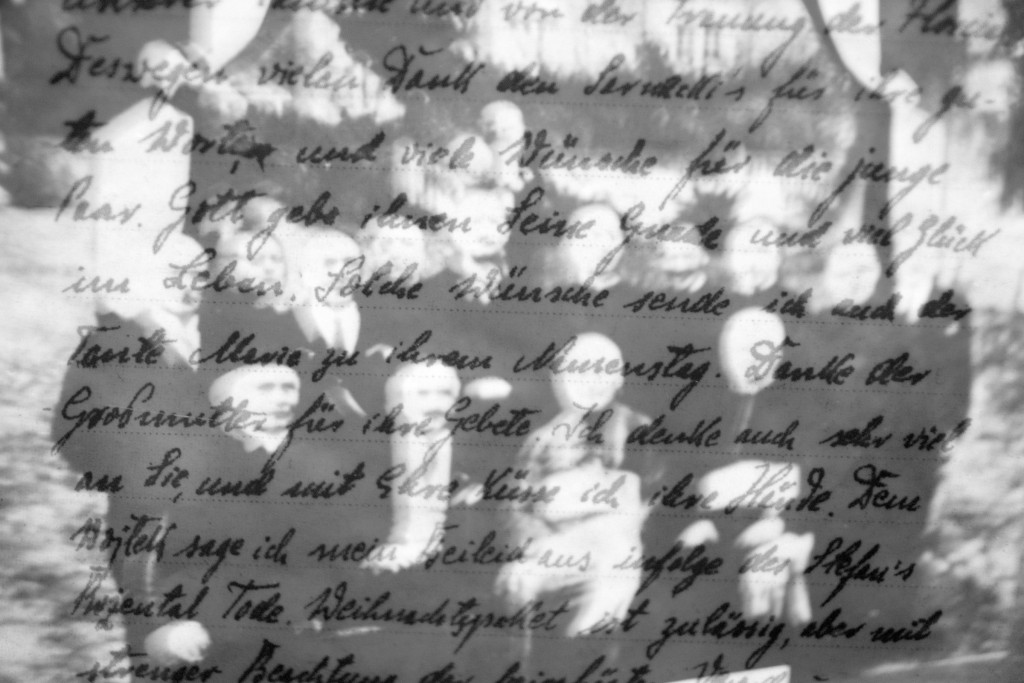 und von der Trauung der
Deswegen vielen Dank den Sarnecki's für ihre gu-
ten Worte, und viele Wünsche für die junge
Paar. Gott gebe ihnen Seine Gnade und viel Glück
im Leben. Solche Wünsche sende ich auch der
Tante Maria zu ihrem Namenstag. Danke der
Großmutter für ihre Gebete. Ich denke auch sehr viel
an Sie, und mit Ehre küsse ich ihre Hände. Dem
Wojtek sage ich mein Beileid aus infolge der Stefan's
Tode. Weihnachtspaket ist zulässig, aber mit
strenger Beachtung der